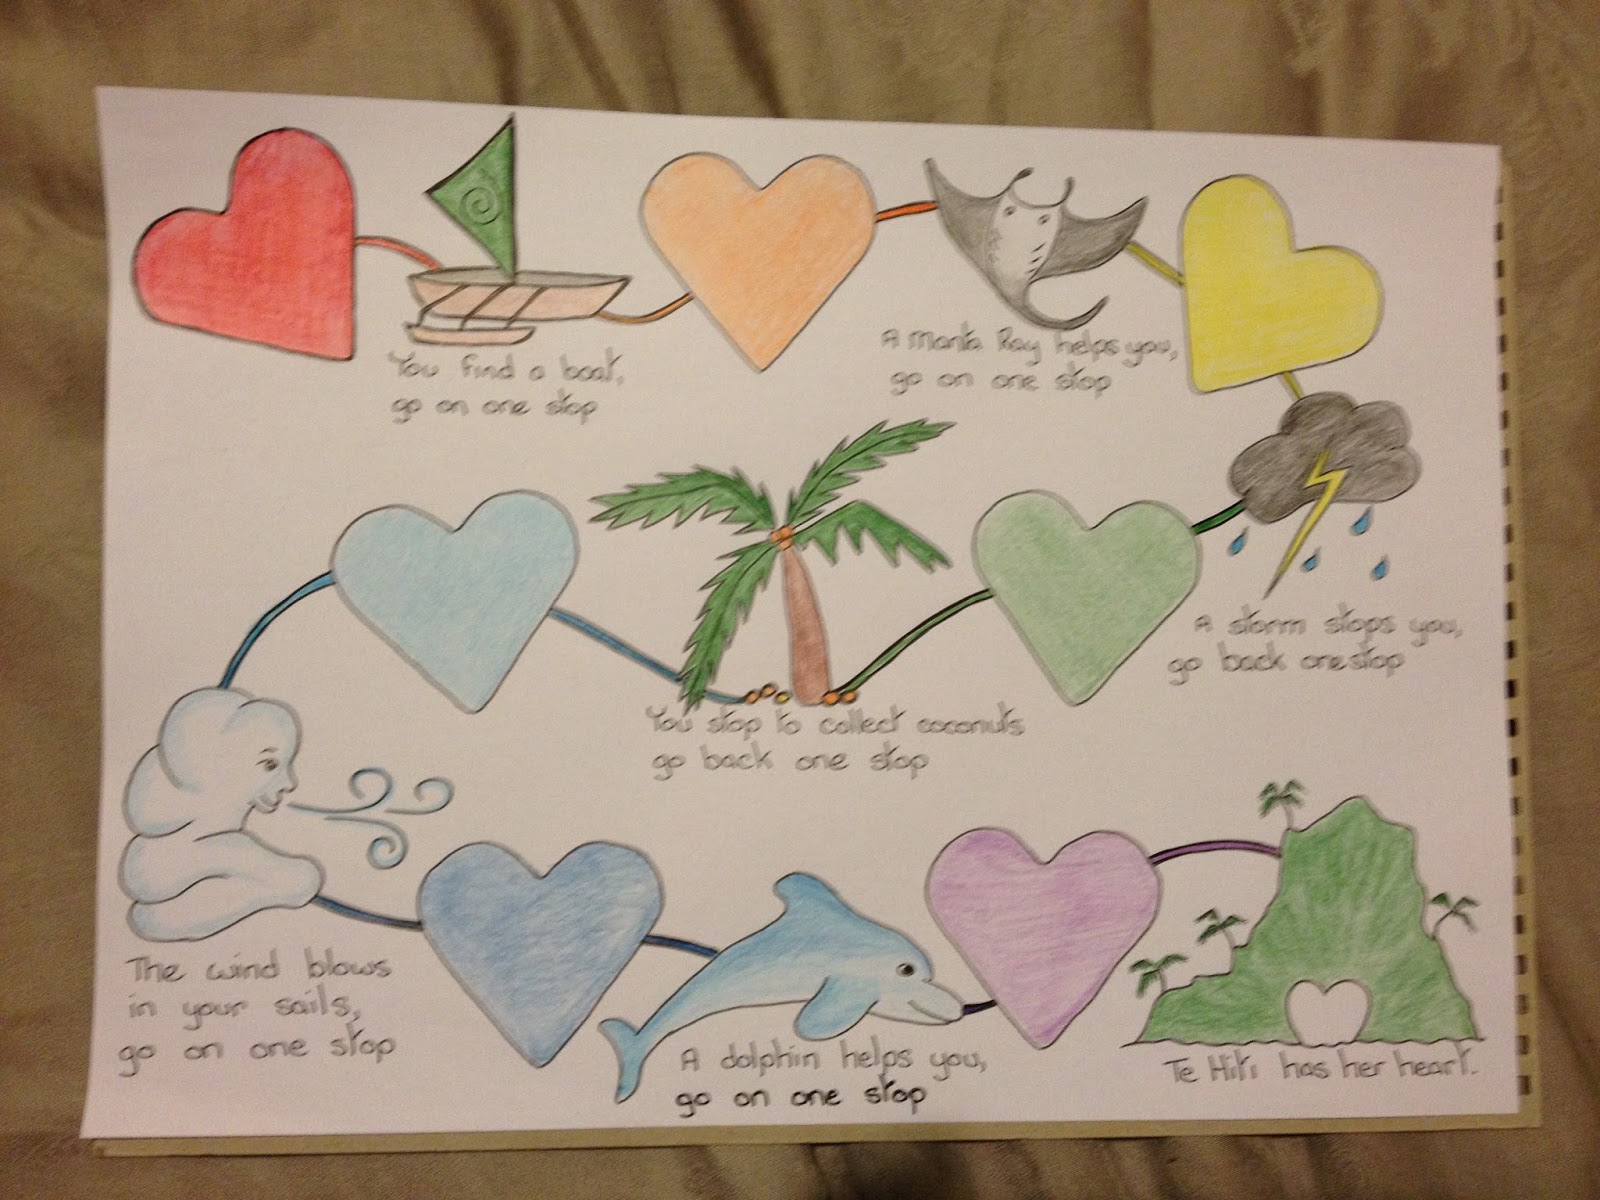 You find a boat,
go on one stop
A Manta Ray helps you,
go on one stop
A storm stops you,
go back one stop
You stop to collect coconuts
go back one stop
The wind blows
in your sails,
go on one stop
A dolphin helps you,
go on one stop
Te Hiti has her heart.